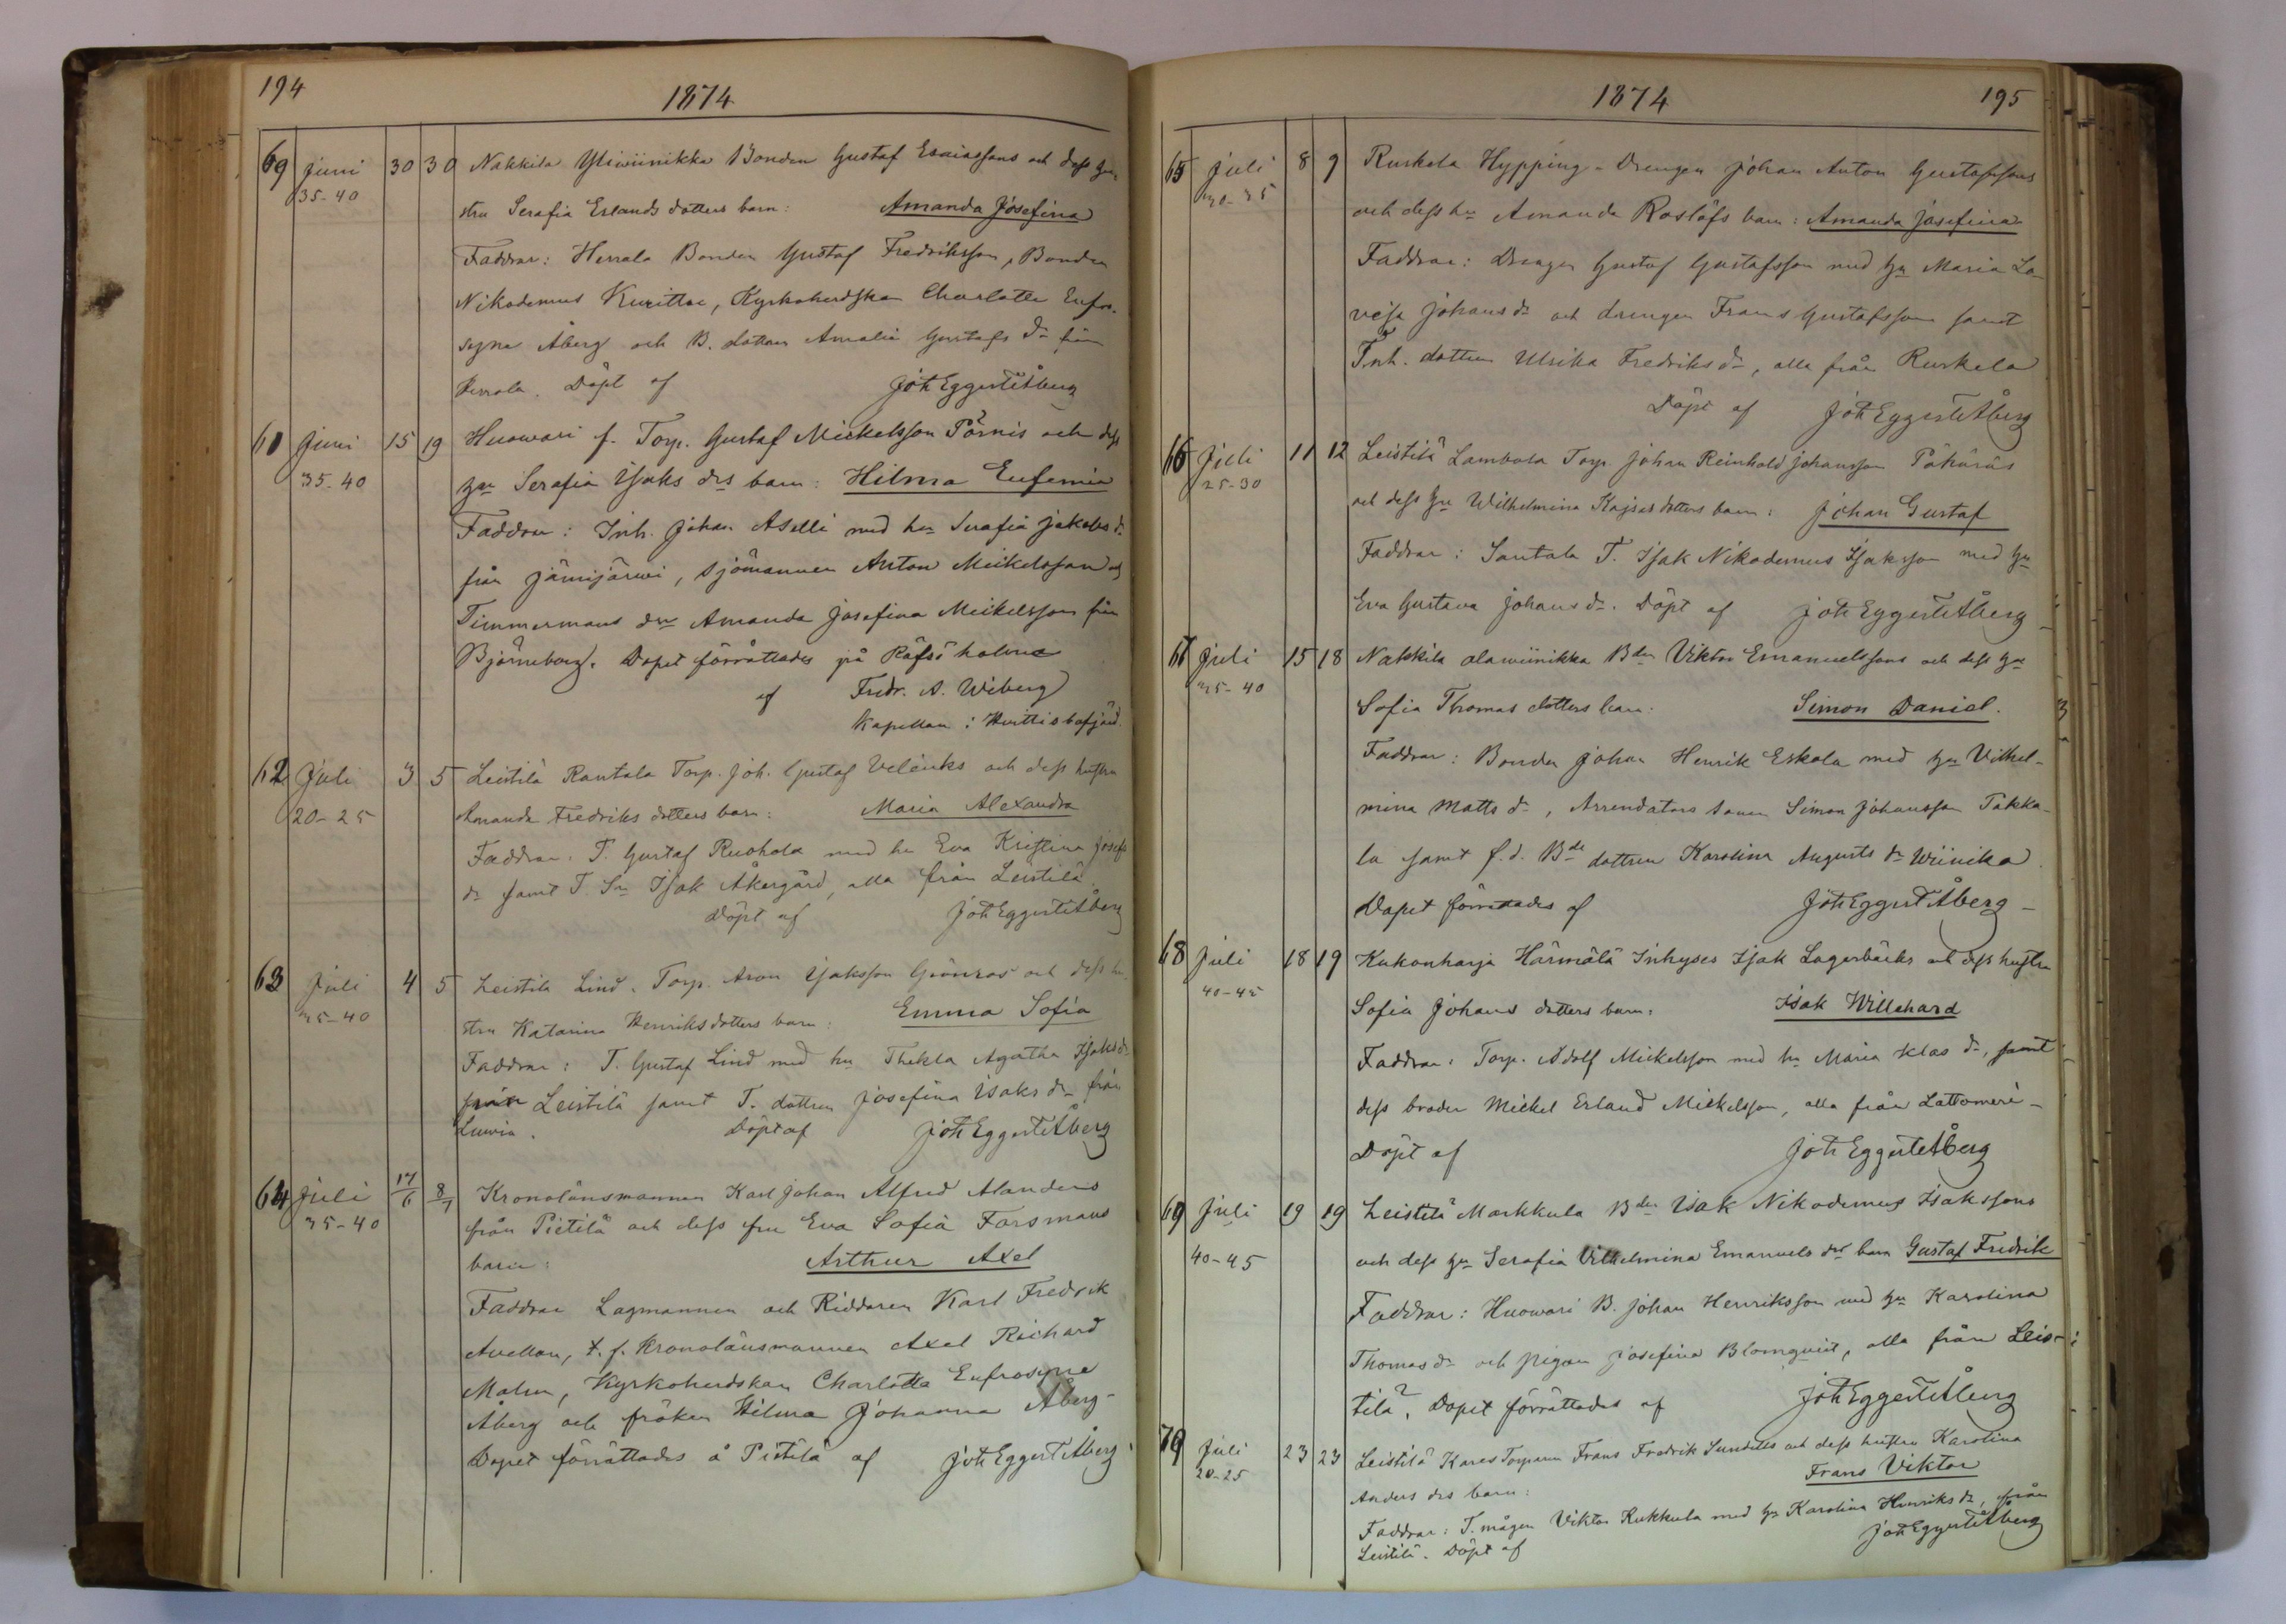 194
1874
69 Juni 30 30 Nakkila Yliwiinikka Bonden Gustaf Esaiassons och dess hu-
35-40 stru Serafia Erlands dotters barn: Amanda Josefina
Faddrar: Herrala Bonden Gustaf Fredriksson, Bonden
Nikodemus Kurittu, Kyrkoherdskan Charlotta Eufro-
syne Åberg och B. dottren Amalia Gustafs dr från
Herrala. Döpt af Joh Eggert Åberg
61 Juni 15 19 Huowari f. Torp. Gustaf Mickelsson Pörnis och dess
35-40 hu Serafia Isaks drs barn: Hilma Eufemia
Faddrar: Inh. Johan Aselli med hu Serafia Jakobs dr
från Jämijärwi, Sjömannen Anton Mickelsson och
Timmermans drn Amanda Josefina Mickelsson från
Björneborg. Dopet förrättades på Räfsö holme
af Fredr. A. Wiberg
Kapellan i Hwittisbofjärd.
62 Juli 3 5 Leistilä Rantala Torp. Joh. Gustaf Veleniks och dess hustru
20-25 Amanda Fredriks dotters barn: Maria Alexandra
Faddrar: T. Gustaf Ruohola med hu Eva Kristina Josefs
dr samt T. Sn Isak Åkergård, alla från Leistilä.
Döpt af Joh Eggert Åberg
63 Juli 4 5 Leistilä Lind. Torp. Aron Isaksson Grönroos och dess hu-
35-40 stru Katarina Henriksdotters barn: Emma Sofia
Faddrar: T. Gustaf Lind med hu Thekla Agatha Isaks dr
från Leistilä samt T. dottren Josefina Isaks dr från
Luwia. Döpt af Joh Eggert Åberg
64 Juli 17/6 8/7 Kronolänsmannen Karl Johan Alfred Alanders
35-40 från Pietilä och dess fru Eva Sofia Forsmans
barn: Arthur Axel
Faddrar Lagmannen och Riddaren Karl Fredrik
Avellan, t. f. Kronolänsmannen Axel Richard
Malm, Kyrkoherdskan Charlotta Eufrosyne
Åberg och fröken Hilma Johanna Åberg-
Dopet förrättades å Pietilä af Joh Eggert Åberg
1874
195
65 Juli 8 9 Ruskela Hypping-Drengen Johan Anton Gustafssons
30-35 och dess hu Amanda Roslöfs barn: Amanda Josefina
Faddrar: Drengen Gustaf Gustafsson med hu Maria Lo-
visa Johans dr och drengen Frans Gustafsson samt
Inh. dottren Ulrika Fredriks dr, alla från Ruskela
Döpt af Joh Eggert Åberg
66 Juli 11 12 Leistilä Lambola Torp. Johan Reinhold Johansson
25-30 och dess hu Wilhelmina Kajsas dotters barn: Johan Gustaf
Faddrar: Santala T. Isak Nikodemus Isaksson med hu
Eva Gustava Johans dr. Döpt af Joh Eggert Åberg
67 Juli 15 18 Nakkila alawiinikka Bdn Viktor Emanuelssons och dess hu
35-40 Sofia Thomas dotters barn: Simon Daniel.
Faddrar: Bonden Johan Henrik Eskola med hu Vilhel-
mina Matts dr, Arrendators sonen Simon Johansson Takka-
la samt f.d. Bde dottren Karolina Augusts dr Wiinika.
Dopet förrättades af Joh Eggert Åberg-
68 Juli 18 19 Kukonharja Härmälä Inhyses Isak Lagerbäcks och dess hustru
40-45 Sofia Johans dotters barn: Isak Willehard
Faddrar: Torp. Adolf Mickelsson med hu Maria Klas dr, samt
dess broder Mickel Erland Mickelsson, alla från Lattomeri-
Döpt af Joh Eggert Åberg
69 Juli 19 19 Leistilä Markkula Bdn Isak Nikodemus Isakssons
40-45 och dess hu Serafia Vilhelmina Emanuels drs barn Gustaf Fredrik
Faddrar: Huowari B. Johan Henriksson med hu Karolina
Thomas dr och pigan Josefina Blomqvist, alla från Leis-
tilä. Dopet förrättades af Joh Eggert Åberg
70 Juli 23 23 Leistilä Kares Torparen Frans Fredrik Sundells och dess hustru Karolina
20-25 Anders drs barn: Frans Viktor
Faddrar: T. mågen Viktor Kukkula med hu Karolina Henriks dr, från
Leistilä. Döpt af Joh Eggert Åberg